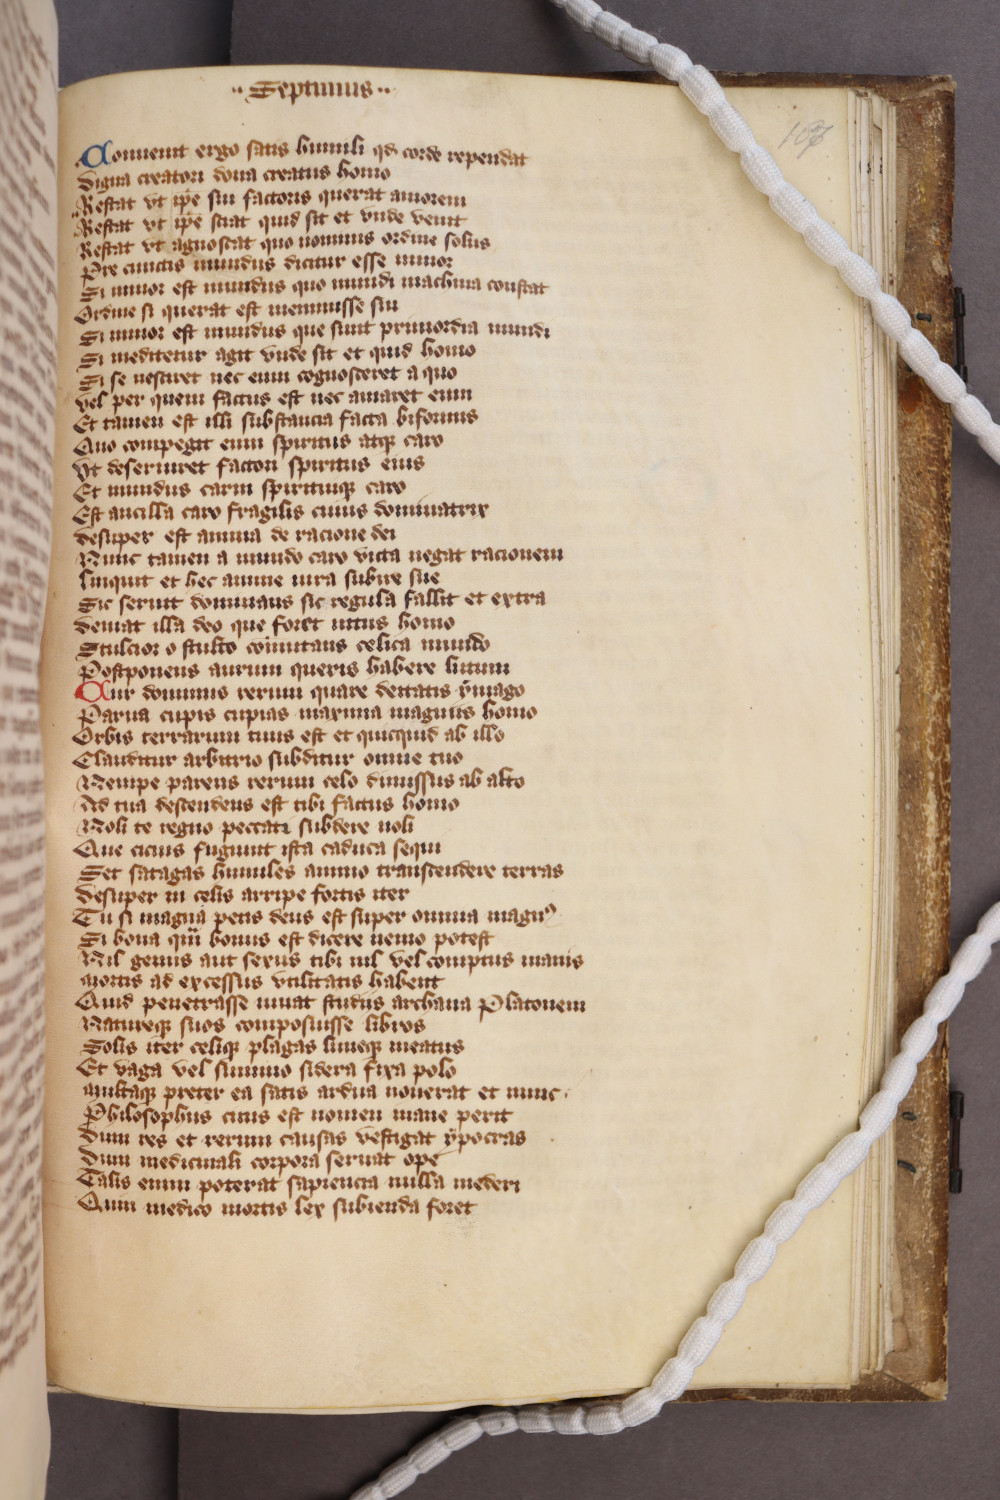 Septimus
107
Conuenit ergo satis humili qd corde rependat
Digna creatori dona creatus homo
Restat vt ipe sui factoris querat amorem
Restat vt ipe sciat quid sit et vnde venit
Restat vt agnoscat quo nominis ordine solus
Pre cunctis mundus dicitur esse minor
Si minor est mundus quo mundi machina constat
Ordine si querat est meminisse sui
Si minor est mundus que sunt primordia mundi
Si meditetur agit vnde sit et quid homo
Si se nesciret nec eum cognosceret a quo
Vel per quem factus est nec amaret eum
Et tamen est illi substancia facta biformis
Quo compegit eum spiritus atqz caro
Vt deseruiret factori spiritus eius
Et mundus carni spirituiqz caro
Est ancilla caro fragilis cuius dominatrix
Desuper est anima de racione dei
Nunc tamen a mundo caro victa negat racionem
Linquit et hec anime iura subire sue
Sic seruit dominans sic regula fallit et extra
Deuiat illa deo que foret intus homo
Stulcior o stulto comutans celica mundo
Postponens aurum queris habere lutum
Cur dominus rerum quare deitatis ymago
Parua cupis cupias maxima magnus homo
Orbis terrarum tuus est et quicquid ab illo
Clauditur arbitrio subditur omne tuo
Nempe parens rerum celo dimissus ab alto
Ad tua descendens est tibi factus homo
Noli te regno peccati subdere noli
Que cicius fugiunt ista caduca sequi
Set satagas humiles animo transcendere terras
Desuper in celis arripe fortis iter
Tu si magna petis deus est super omnia magnus
Si bona qui bonus est dicere nemo potest
Nil genus aut sexus tibi nil vel comptus inanis
Mortis ad excessus vtilitatis habent
Quid penetrasse iuuat studiis archana Platonem
Natureqz suos composuisse libros
Solis iter celiqz plagas luneqz meatus
Et vaga vel summo sidera fixa polo
Multaqz preter ea satis ardua nouerat et nunc
Philosophus cuius est nomen inane perit
Dum res et rerum causas vestigat ypocras
Dum medicinali corpora seruat ope
Talis enim poterat sapiencia nulla mederi
Quin medico mortis lex subienda foret